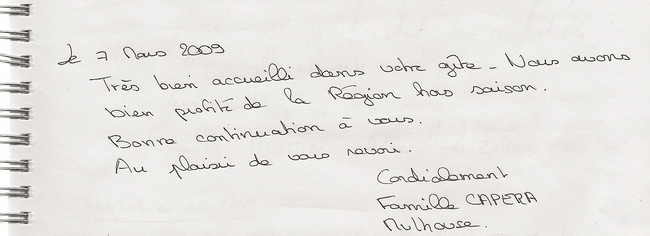 Le 7 Mars 2009
Très bien accueilli dans votre gîte - Nous avons
bien profité de la Région hors saison.
Bonne continuation à vous.
Au plaisir de vous revoir.
Cordialement
Famille CAPERA
Mulhouse.